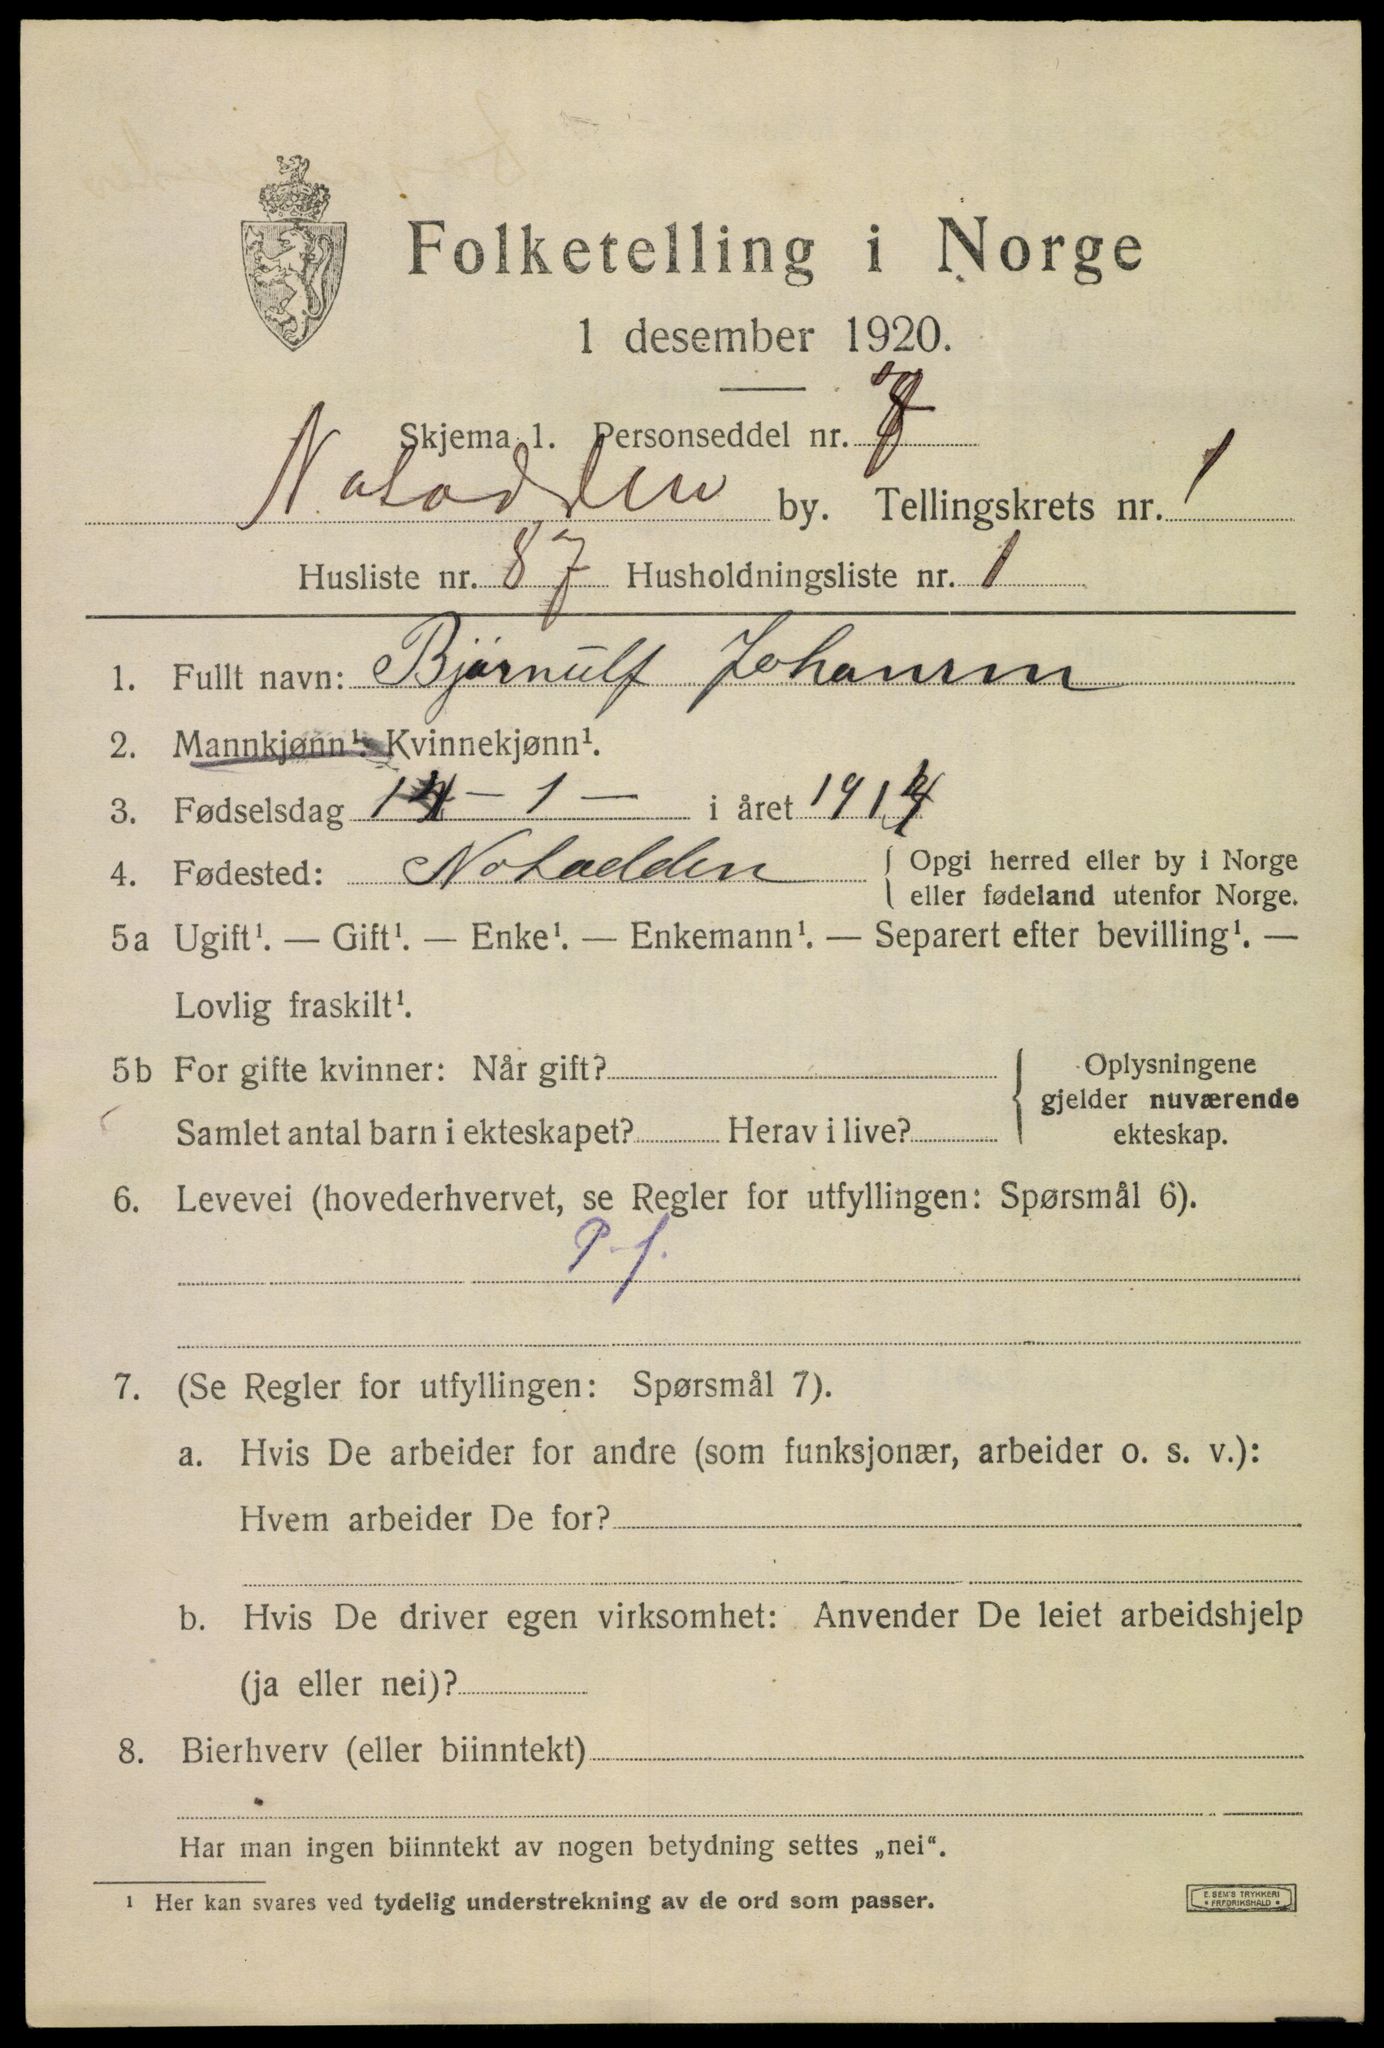 Folketelling i Norge
1 desember 1920.
Skjema 1. Personseddel nr.
Notodden by. Tellingskrets nr. 1
Husliste nr. 87 Husholdningsliste nr. 1
1. Fullt navn: Bjørnulf Johansen
2. Mannkjønn¹. Kvinnekjønn¹.
3. Fødselsdag 14 - 1 - i året 191
4. Fødested: Notodden { Opgi herred eller by i Norge
eller fødeland utenfor Norge.
5a Ugift¹. — Gift¹. — Enke¹. — Enkemann¹. — Separert efter bevilling¹. —
Lovlig fraskilt¹.
5b For gifte kvinner: Når gift? { Oplysningene
gjelder nuværende
Samlet antal barn i ekteskapet? Herav i live? ekteskap.
6. Levevei (hovederhvervet, se Regler for utfyllingen: Spørsmål 6).
P.f.
7. (Se Regler for utfyllingen: Spørsmål 7).
a. Hvis De arbeider for andre (som funksjonær, arbeider o. s. v.):
Hvem arbeider De for?
b. Hvis De driver egen virksomhet: Anvender De leiet arbeidshjelp
(ja eller nei)?
8. Bierhverv (eller biinntekt)
Har man ingen biinntekt av nogen betydning settes „nei“.
¹ Her kan svares ved tydelig understrekning av de ord som passer.
E. SEM'S TRYKKERI
FREDRIKSHALD